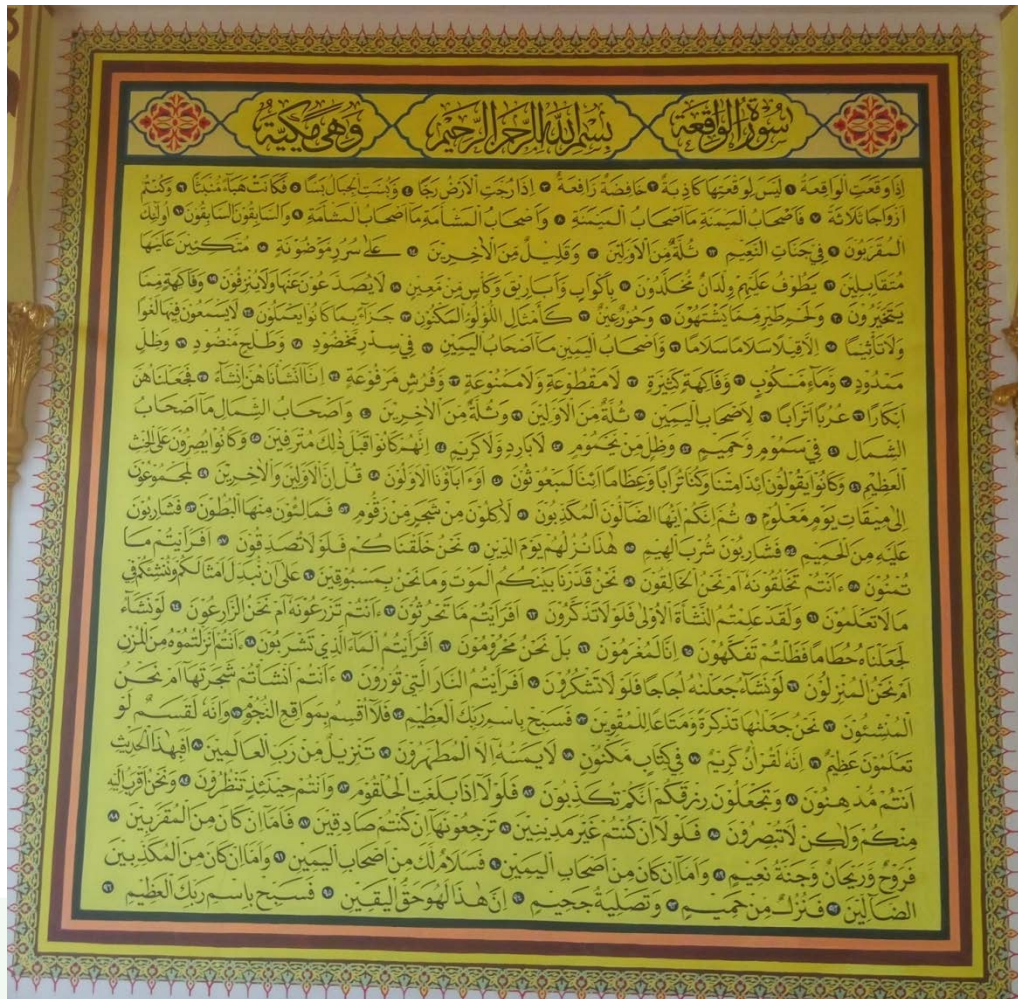 سورة الواقعة بسم الله الرحمن الرحيم وهي مكية
اِذَا وَقَعَتِ الْوَاقِعَةُ ١ لَيْسَ لِوَقْعَتِهَا كَاذِبَةٌ ٢ خَافِضَةٌ رَافِعَةٌ ٣ اِذَا رُجَّتِ الْاَرْضُ رَجًّا ٤ وَبُسَّتِ الْجِبَالُ بَسًّا ٥ فَكَانَتْ هَبَاءً مُنْبَثًّا ٦ وَكُنْتُمْ
اَزْوَاجًا ثَلَاثَةً ٧ فَاَصْحَابُ الْمَيْمَنَةِ مَا اَصْحَابُ الْمَيْمَنَةِ ٨ وَاَصْحَابُ الْمَشْاَمَةِ مَا اَصْحَابُ الْمَشْاَمَةِ ٩ وَالسَّابِقُونَ السَّابِقُونَ ١٠ اُولٰئِكَ
الْمُقَرَّبُونَ ١١ فِي جَنَّاتِ النَّعِيمِ ١٢ ثُلَّةٌ مِنَ الْاَوَّلِينَ ١٣ وَقَلِيلٌ مِنَ الْاٰخِرِينَ ١٤ عَلٰى سُرُرٍ مَوْضُونَةٍ ١٥ مُتَّكِئِينَ عَلَيْهَا
مُتَقَابِلِينَ ١٦ يَطُوفُ عَلَيْهِمْ وِلْدَانٌ مُخَلَّدُونَ ١٧ بِاَكْوَابٍ وَاَبَارِيقَ وَكَاْسٍ مِنْ مَعِينٍ ١٨ لَا يُصَدَّعُونَ عَنْهَا وَلَا يُنْزِفُونَ ١٩ وَفَاكِهَةٍ مِمَّا
يَتَخَيَّرُونَ ٢٠ وَلَحْمِ طَيْرٍ مِمَّا يَشْتَهُونَ ٢١ وَحُورٌ عِينٌ ٢٢ كَاَمْثَالِ اللُّؤْلُؤِ الْمَكْنُونِ ٢٣ جَزَاءً بِمَا كَانُوا يَعْمَلُونَ ٢٤ لَا يَسْمَعُونَ فِيهَا لَغْوًا
وَلَا تَاْثِيمًا ٢٥ اِلَّا قِيلًا سَلَامًا سَلَامًا ٢٦ وَاَصْحَابُ الْيَمِينِ مَا اَصْحَابُ الْيَمِينِ ٢٧ فِي سِدْرٍ مَخْضُودٍ ٢٨ وَطَلْحٍ مَنْضُودٍ ٢٩ وَظِلٍّ
مَمْدُودٍ ٣٠ وَمَاءٍ مَسْكُوبٍ ٣١ وَفَاكِهَةٍ كَثِيرَةٍ ٣٢ لَا مَقْطُوعَةٍ وَلَا مَمْنُوعَةٍ ٣٣ وَفُرُشٍ مَرْفُوعَةٍ ٣٤ اِنَّا اَنْشَاْنَاهُنَّ اِنْشَاءً ٣٥ فَجَعَلْنَاهُنَّ
اَبْكَارًا ٣٦ عُرُبًا اَتْرَابًا ٣٧ لِاَصْحَابِ الْيَمِينِ ٣٨ ثُلَّةٌ مِنَ الْاَوَّلِينَ ٣٩ وَثُلَّةٌ مِنَ الْاٰخِرِينَ ٤٠ وَاَصْحَابُ الشِّمَالِ مَا اَصْحَابُ
الشِّمَالِ ٤١ فِي سَمُومٍ وَحَمِيمٍ ٤٢ وَظِلٍّ مِنْ يَحْمُومٍ ٤٣ لَا بَارِدٍ وَلَا كَرِيمٍ ٤٤ اِنَّهُمْ كَانُوا قَبْلَ ذٰلِكَ مُتْرَفِينَ ٤٥ وَكَانُوا يُصِرُّونَ عَلَى الْحِنْثِ
الْعَظِيمِ ٤٦ وَكَانُوا يَقُولُونَ اَئِذَا مِتْنَا وَكُنَّا تُرَابًا وَعِظَامًا اَئِنَّا لَمَبْعُوثُونَ ٤٧ اَوَ اٰبَاؤُنَا الْاَوَّلُونَ ٤٨ قُلْ اِنَّ الْاَوَّلِينَ وَالْاٰخِرِينَ ٤٩ لَمَجْمُوعُونَ
اِلٰى مِيقَاتِ يَوْمٍ مَعْلُومٍ ٥٠ ثُمَّ اِنَّكُمْ اَيُّهَا الضَّالُّونَ الْمُكَذِّبُونَ ٥١ لَاٰكِلُونَ مِنْ شَجَرٍ مِنْ زَقُّومٍ ٥٢ فَمَالِئُونَ مِنْهَا الْبُطُونَ ٥٣ فَشَارِبُونَ
عَلَيْهِ مِنَ الْحَمِيمِ ٥٤ فَشَارِبُونَ شُرْبَ الْهِيمِ ٥٥ هٰذَا نُزُلُهُمْ يَوْمَ الدِّينِ ٥٦ نَحْنُ خَلَقْنَاكُمْ فَلَوْلَا تُصَدِّقُونَ ٥٧ اَفَرَاَيْتُمْ مَا
تُمْنُونَ ٥٨ ءَاَنْتُمْ تَخْلُقُونَهُ اَمْ نَحْنُ الْخَالِقُونَ ٥٩ نَحْنُ قَدَّرْنَا بَيْنَكُمُ الْمَوْتَ وَمَا نَحْنُ بِمَسْبُوقِينَ ٦٠ عَلٰى اَنْ نُبَدِّلَ اَمْثَالَكُمْ وَنُنْشِئَكُمْ فِي
مَا لَا تَعْلَمُونَ ٦١ وَلَقَدْ عَلِمْتُمُ النَّشْاَةَ الْاُولٰى فَلَوْلَا تَذَكَّرُونَ ٦٢ اَفَرَاَيْتُمْ مَا تَحْرُثُونَ ٦٣ ءَاَنْتُمْ تَزْرَعُونَهُ اَمْ نَحْنُ الزَّارِعُونَ ٦٤ لَوْ نَشَاءُ
لَجَعَلْنَاهُ حُطَامًا فَظَلْتُمْ تَفَكَّهُونَ ٦٥ اِنَّا لَمُغْرَمُونَ ٦٦ بَلْ نَحْنُ مَحْرُومُونَ ٦٧ اَفَرَاَيْتُمُ الْمَاءَ الَّذِي تَشْرَبُونَ ٦٨ ءَاَنْتُمْ اَنْزَلْتُمُوهُ مِنَ الْمُزْنِ
اَمْ نَحْنُ الْمُنْزِلُونَ ٦٩ لَوْ نَشَاءُ جَعَلْنٰهُ اُجَاجًا فَلَوْلَا تَشْكُرُونَ ٧٠ اَفَرَاَيْتُمُ النَّارَ الَّتِي تُورُونَ ٧١ ءَاَنْتُمْ اَنْشَاْتُمْ شَجَرَتَهَا اَمْ نَحْنُ
الْمُنْشِئُونَ ٧٢ نَحْنُ جَعَلْنٰهَا تَذْكِرَةً وَمَتَاعًا لِلْمُقْوِينَ ٧٣ فَسَبِّحْ بِاسْمِ رَبِّكَ الْعَظِيمِ ٧٤ فَلَا اُقْسِمُ بِمَوَاقِعِ النُّجُومِ ٧٥ وَاِنَّهُ لَقَسَمٌ لَوْ
تَعْلَمُونَ عَظِيمٌ ٧٦ اِنَّهُ لَقُرْاٰنٌ كَرِيمٌ ٧٧ فِي كِتَابٍ مَكْنُونٍ ٧٨ لَا يَمَسُّهُ اِلَّا الْمُطَهَّرُونَ ٧٩ تَنْزِيلٌ مِنْ رَبِّ الْعَالَمِينَ ٨٠ اَفَبِهٰذَا الْحَدِيثِ
اَنْتُمْ مُدْهِنُونَ ٨١ وَتَجْعَلُونَ رِزْقَكُمْ اَنَّكُمْ تُكَذِّبُونَ ٨٢ فَلَوْلَا اِذَا بَلَغَتِ الْحُلْقُومَ ٨٣ وَاَنْتُمْ حِينَئِذٍ تَنْظُرُونَ ٨٤ وَنَحْنُ اَقْرَبُ اِلَيْهِ
مِنْكُمْ وَلٰكِنْ لَا تُبْصِرُونَ ٨٥ فَلَوْلَا اِنْ كُنْتُمْ غَيْرَ مَدِينِينَ ٨٦ تَرْجِعُونَهَا اِنْ كُنْتُمْ صَادِقِينَ ٨٧ فَاَمَّا اِنْ كَانَ مِنَ الْمُقَرَّبِينَ ٨٨
فَرَوْحٌ وَرَيْحَانٌ وَجَنَّةُ نَعِيمٍ ٨٩ وَاَمَّا اِنْ كَانَ مِنْ اَصْحَابِ الْيَمِينِ ٩٠ فَسَلَامٌ لَكَ مِنْ اَصْحَابِ الْيَمِينِ ٩١ وَاَمَّا اِنْ كَانَ مِنَ الْمُكَذِّبِينَ
الضَّالِّينَ ٩٢ فَنُزُلٌ مِنْ حَمِيمٍ ٩٣ وَتَصْلِيَةُ جَحِيمٍ ٩٤ اِنَّ هٰذَا لَهُوَ حَقُّ الْيَقِينِ ٩٥ فَسَبِّحْ بِاسْمِ رَبِّكَ الْعَظِيمِ ٩٦